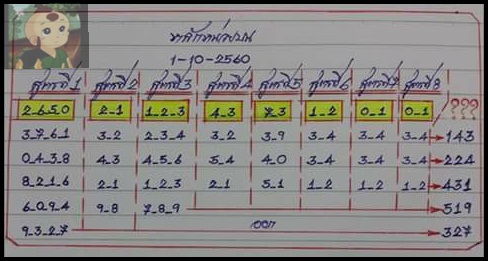 หลักหน่วยบน
1-10-2560
สูตรที่1 สูตรที่2 สูตรที่3 สูตรที่4 สูตรที่5 สูตรที่6 สูตรที่7 สูตรที่8
2-6-5-0 2-1 1-2-3 4-3 7-3 1-2 0-1 0-1 ???
3-7-6-1 3-2 2-3-4 3-2 3-9 3-4 3-4 3-4 → 143
0-4-3-8 4-3 4-5-6 5-4 4-0 3-4 3-4 3-4 → 224
8-2-1-6 2-1 1-2-3 2-1 5-1 1-2 1-2 1-2 → 431
6-0-9-4 9-8 7-8-9 → 519
9-3-2-7 ออก → 327